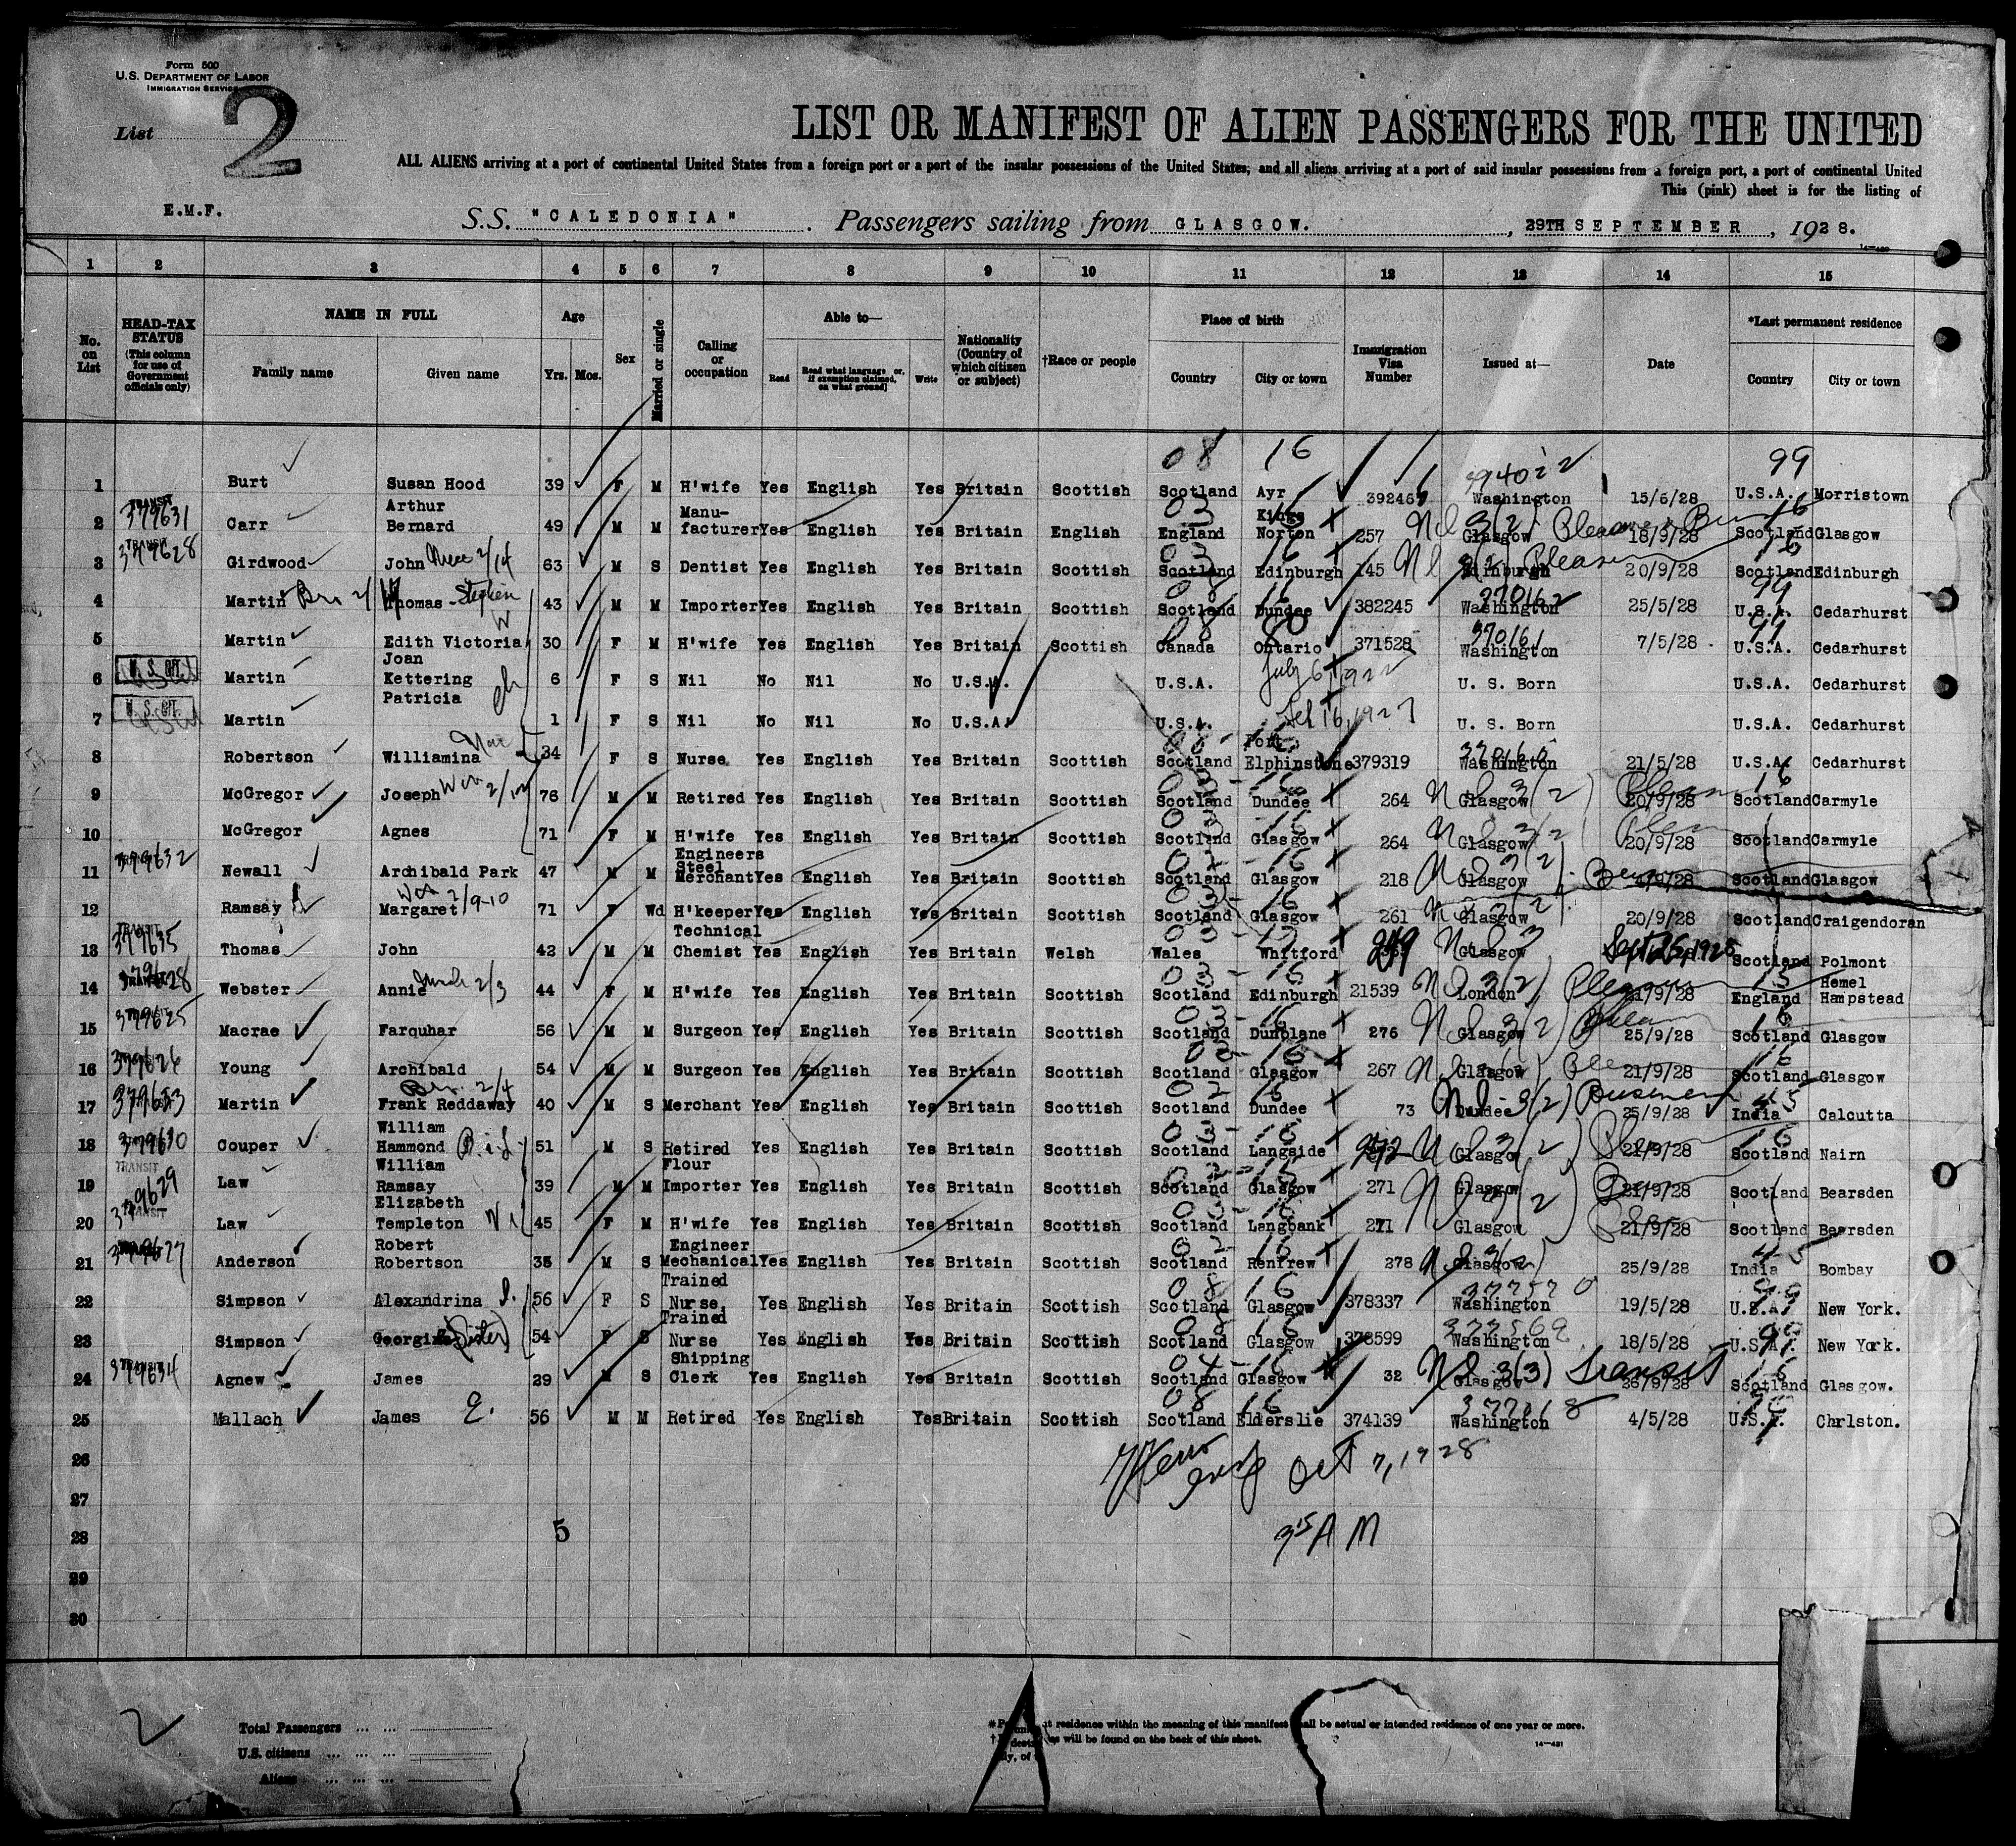 Form 500
U.S. DEPARTMENT OF LABOR
IMMIGRATION SERVICE
List 2
LIST OR MANIFEST OF ALIEN PASSENGERS FOR THE UNITED
ALL ALIENS arriving at a port of continental United States from a foreign port or a port of the insular possessions of the United States, and all aliens arriving at a port of said insular possessions from a foreign port, a port of continental United
This (pink) sheet is for the listing of
E.M.F.
S.S. "CALEDONIA" . Passengers sailing from GLASGOW. , 29TH SEPTEMBER , 1928.
1 2 3 4 5 6 7 8 9 10 11 12 13 14 15
No. on List
HEAD-TAX STATUS (This column for use of Government officials only)
NAME IN FULL
Family name Given name
Age
Yrs. Mos.
Sex
Married or single
Calling or occupation
Able to—
Read Read what language [or, if exemption claimed, on what ground] Write
Nationality (Country of which citizen or subject)
†Race or people
Place of birth
Country City or town
Immigration Visa Number
Issued at—
Date
*Last permanent residence
Country City or town
08 16 99
1 Burt Susan Hood 39 F M H'wife Yes English Yes Britain Scottish Scotland Ayr Washington 15/6/28 U.S.A. Morristown
2 TRANSIT 379631 Carr Arthur Bernard 49 M M Manufacturer Yes English Yes Britain English England Kings Norton 257 Glasgow 18/9/28 Scotland Glasgow
3 TRANSIT 379628 Girdwood John 63 M S Dentist Yes English Yes Britain Scottish Scotland Edinburgh 145 Edinburgh 20/9/28 Scotland Edinburgh
4 Martin Thomas Stephen 43 M M Importer Yes English Yes Britain Scottish Scotland Dundee 382245 Washington 25/5/28 U.S.A. Cedarhurst
5 Martin Edith Victoria 30 F M H'wife Yes English Yes Britain Scottish Canada Ontario 371528 Washington 7/5/28 U.S.A. Cedarhurst
6 U.S. CIT. Martin Joan Kettering 6 F S Nil No Nil No U.S.A. U.S.A. July 6 1922 U. S. Born U.S.A. Cedarhurst
7 U.S. CIT. Martin Patricia 1 F S Nil No Nil No U.S.A. U.S.A. Feb 16, 1927 U. S. Born U.S.A. Cedarhurst
8 Robertson Williamina 34 F S Nurse Yes English Yes Britain Scottish Scotland Port Elphinstone 379319 Washington 21/5/28 U.S.A. Cedarhurst
9 McGregor Joseph 76 M M Retired Yes English Yes Britain Scottish Scotland Dundee 264 Glasgow 20/9/28 Scotland Carmyle
10 McGregor Agnes 71 F M H'wife Yes English Yes Britain Scottish Scotland Glasgow 264 Glasgow 20/9/28 Scotland Carmyle
11 379632 Newall Archibald Park 47 M M Engineers Steel Merchant Yes English Yes Britain Scottish Scotland Glasgow 218 Glasgow Scotland Glasgow
12 Ramsay Margaret 71 F Wd H'keeper Yes English Yes Britain Scottish Scotland Glasgow 261 Glasgow 20/9/28 Scotland Craigendoran
13 TRANSIT 379635 Thomas John 42 M M Technical Chemist Yes English Yes Britain Welsh Wales Whitford Glasgow Sept 25, 1928 Scotland Polmont
14 Webster Annie 44 F M H'wife Yes English Yes Britain Scottish Scotland Edinburgh 21539 London 21/9/28 England Hemel Hampstead
15 379625 Macrae Farquhar 56 M M Surgeon Yes English Yes Britain Scottish Scotland Dunblane 276 Glasgow 25/9/28 Scotland Glasgow
16 379626 Young Archibald 54 M M Surgeon Yes English Yes Britain Scottish Scotland Glasgow 267 Glasgow 21/9/28 Scotland Glasgow
17 379633 Martin Frank Reddaway 40 M S Merchant Yes English Yes Britain Scottish Scotland Dundee 73 Dundee 25/9/28 India Calcutta
18 379630 Couper William Hammond 51 M S Retired Yes English Yes Britain Scottish Scotland Langside Glasgow 21/9/28 Scotland Nairn
19 TRANSIT 379629 Law William Ramsay 39 M M Flour Importer Yes English Yes Britain Scottish Scotland Glasgow 271 Glasgow 21/9/28 Scotland Bearsden
20 TRANSIT Law Elizabeth Templeton 45 F M H'wife Yes English Yes Britain Scottish Scotland Langbank 271 Glasgow 21/9/28 Scotland Bearsden
21 379627 Anderson Robert Robertson 35 M S Engineer Mechanical Yes English Yes Britain Scottish Scotland Renfrew 278 Glasgow 25/9/28 India Bombay
22 Simpson Alexandrina 56 F S Trained Nurse Yes English Yes Britain Scottish Scotland Glasgow 378337 Washington 19/5/28 U.S.A. New York.
23 Simpson Georgina (Sister) 54 F S Trained Nurse Yes English Yes Britain Scottish Scotland Glasgow 378599 Washington 18/5/28 U.S.A. New York.
24 379634 Agnew James 29 M S Shipping Clerk Yes English Yes Britain Scottish Scotland Glasgow 32 Glasgow Transit 26/9/28 Scotland Glasgow.
25 Mallach James E. 56 M M Retired Yes English Yes Britain Scottish Scotland Elderslie 374139 Washington 4/5/28 U.S.A. Chrlston.
26
27
28
29
30
Oct 7, 1928
5
AM
2
Total Passengers
U.S. citizens
Aliens
residence within the meaning of this manifest shall be actual or intended residence of one year or more.
will be found on the back of this sheet.
14—431